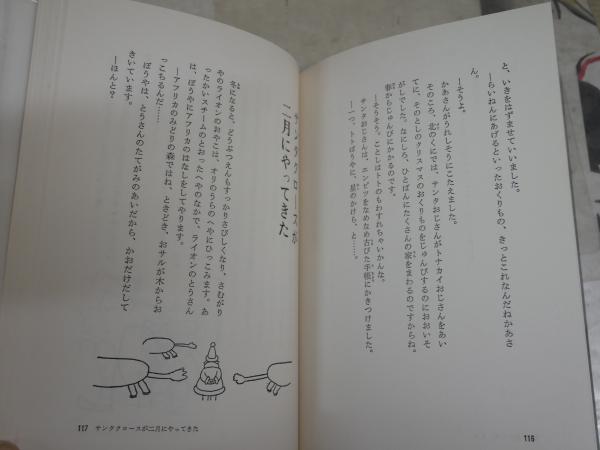 と、いきをはずませていいました。
―らいねんにあげるといったおくりもの、きっとこれなんだねかあさ
ん。
―そうよ。
かあさんがうれしそうにこたえました。
そのころ、北のくにでは、サンタおじさんがトナカイおじさんをあい
てに、そのとしのクリスマスのおくりものをじゅんびするのにおおいそ
がしでした。なにしろ、ひとばんにたくさんの家をまわるのですからね。
春からじゅんびにかかるのです。
―そうそう。ことしはトトのもわすれちゃいかんな。
サンタおじさんは、エンピツをなめなめ古びた手帳にかきつけました。
―一つ、トトぼうやに、星のかけら、と……。
116
サンタクロースが
二月にやってきた
冬になると、どうぶつえんもすっかりさびしくなり、さむがり
やのライオンのおやこは、オリのうらのへやにひっこみます。あ
ったかいスチームのとおったへやのなかで、ライオンのとうさん
は、ぼうやにアフリカのはなしをしてやります。
―アフリカのみどりの森ではね、ときどき、おサルが木からお
っこちるんだ……
ぼうやは、とうさんのたてがみのあいだから、かおだけだして
きいています。
―ほんと?
117 サンタクロースが二月にやってきた